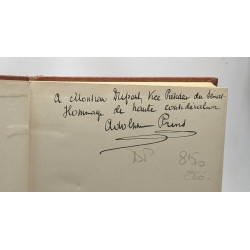 A Monsieur Dupont, Vice Président du Sénat
Hommage de haute considération
Adolphe Prins
DP 850
250.-